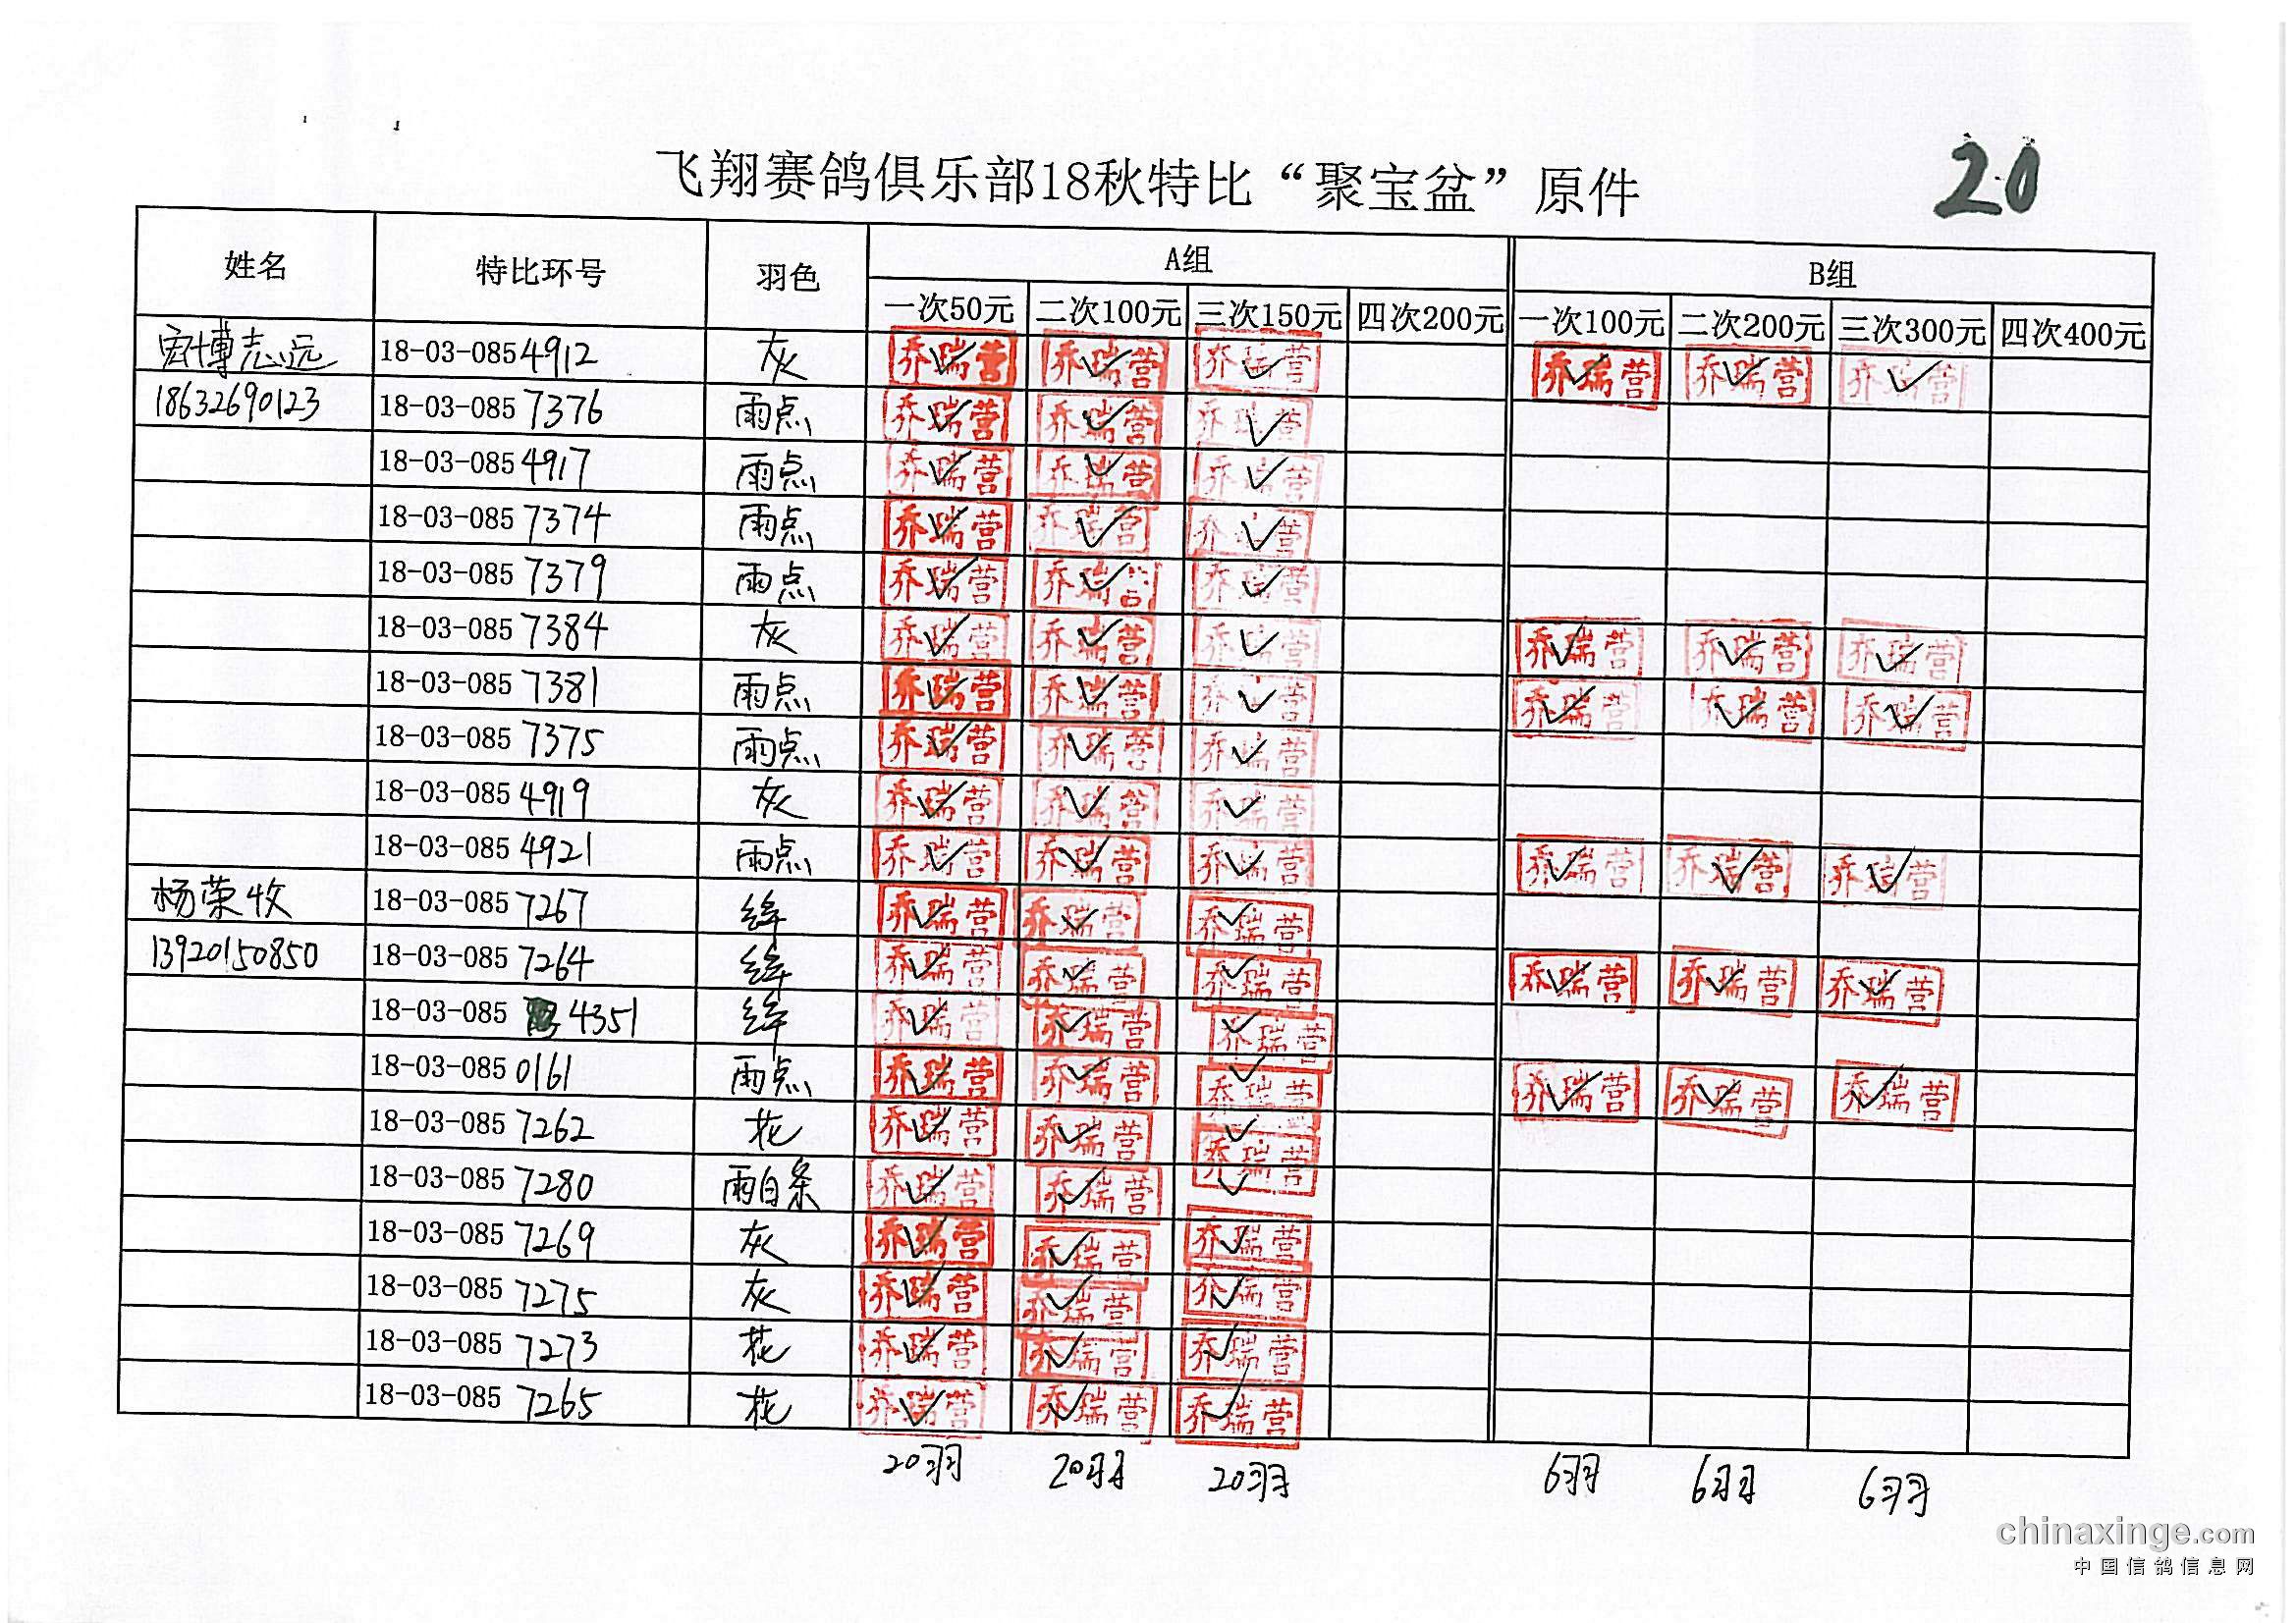 飞翔赛鸽俱乐部18秋特比“聚宝盆”原件 20
姓名 特比环号 羽色 A组 B组
一次50元 二次100元 三次150元 四次200元 一次100元 二次200元 三次300元 四次400元
宏博志远 18-03-085 4912 灰 乔瑞营 乔瑞营 乔瑞营 乔瑞营 乔瑞营 乔瑞营
18632690123 18-03-085 7376 雨点 乔瑞营 乔瑞营 乔瑞营
18-03-085 4917 雨点 乔瑞营 乔瑞营 乔瑞营
18-03-085 7374 雨点 乔瑞营 乔瑞营 乔瑞营
18-03-085 7379 雨点 乔瑞营 乔瑞营 乔瑞营
18-03-085 7384 灰 乔瑞营 乔瑞营 乔瑞营 乔瑞营 乔瑞营 乔瑞营
18-03-085 7381 雨点 乔瑞营 乔瑞营 乔瑞营 乔瑞营 乔瑞营 乔瑞营
18-03-085 7375 雨点 乔瑞营 乔瑞营 乔瑞营
18-03-085 4919 灰 乔瑞营 乔瑞营 乔瑞营
18-03-085 4921 雨点 乔瑞营 乔瑞营 乔瑞营 乔瑞营 乔瑞营 乔瑞营
杨荣收 18-03-085 7267 绛 乔瑞营 乔瑞营 乔瑞营
13920150850 18-03-085 7264 绛 乔瑞营 乔瑞营 乔瑞营 乔瑞营 乔瑞营 乔瑞营
18-03-085 4351 绛 乔瑞营 乔瑞营 乔瑞营
18-03-085 0161 雨点 乔瑞营 乔瑞营 乔瑞营 乔瑞营 乔瑞营 乔瑞营
18-03-085 7262 花 乔瑞营 乔瑞营 乔瑞营
18-03-085 7280 雨白条 乔瑞营 乔瑞营
18-03-085 7269 灰 乔瑞营 乔瑞营 乔瑞营
18-03-085 7275 灰 乔瑞营 乔瑞营 乔瑞营
18-03-085 7273 花 乔瑞营 乔瑞营 乔瑞营
18-03-085 7265 花 乔瑞营 乔瑞营 乔瑞营
20羽 20羽 20羽 6羽 6羽 6羽
chinaxinge.com
中国信鸽信息网